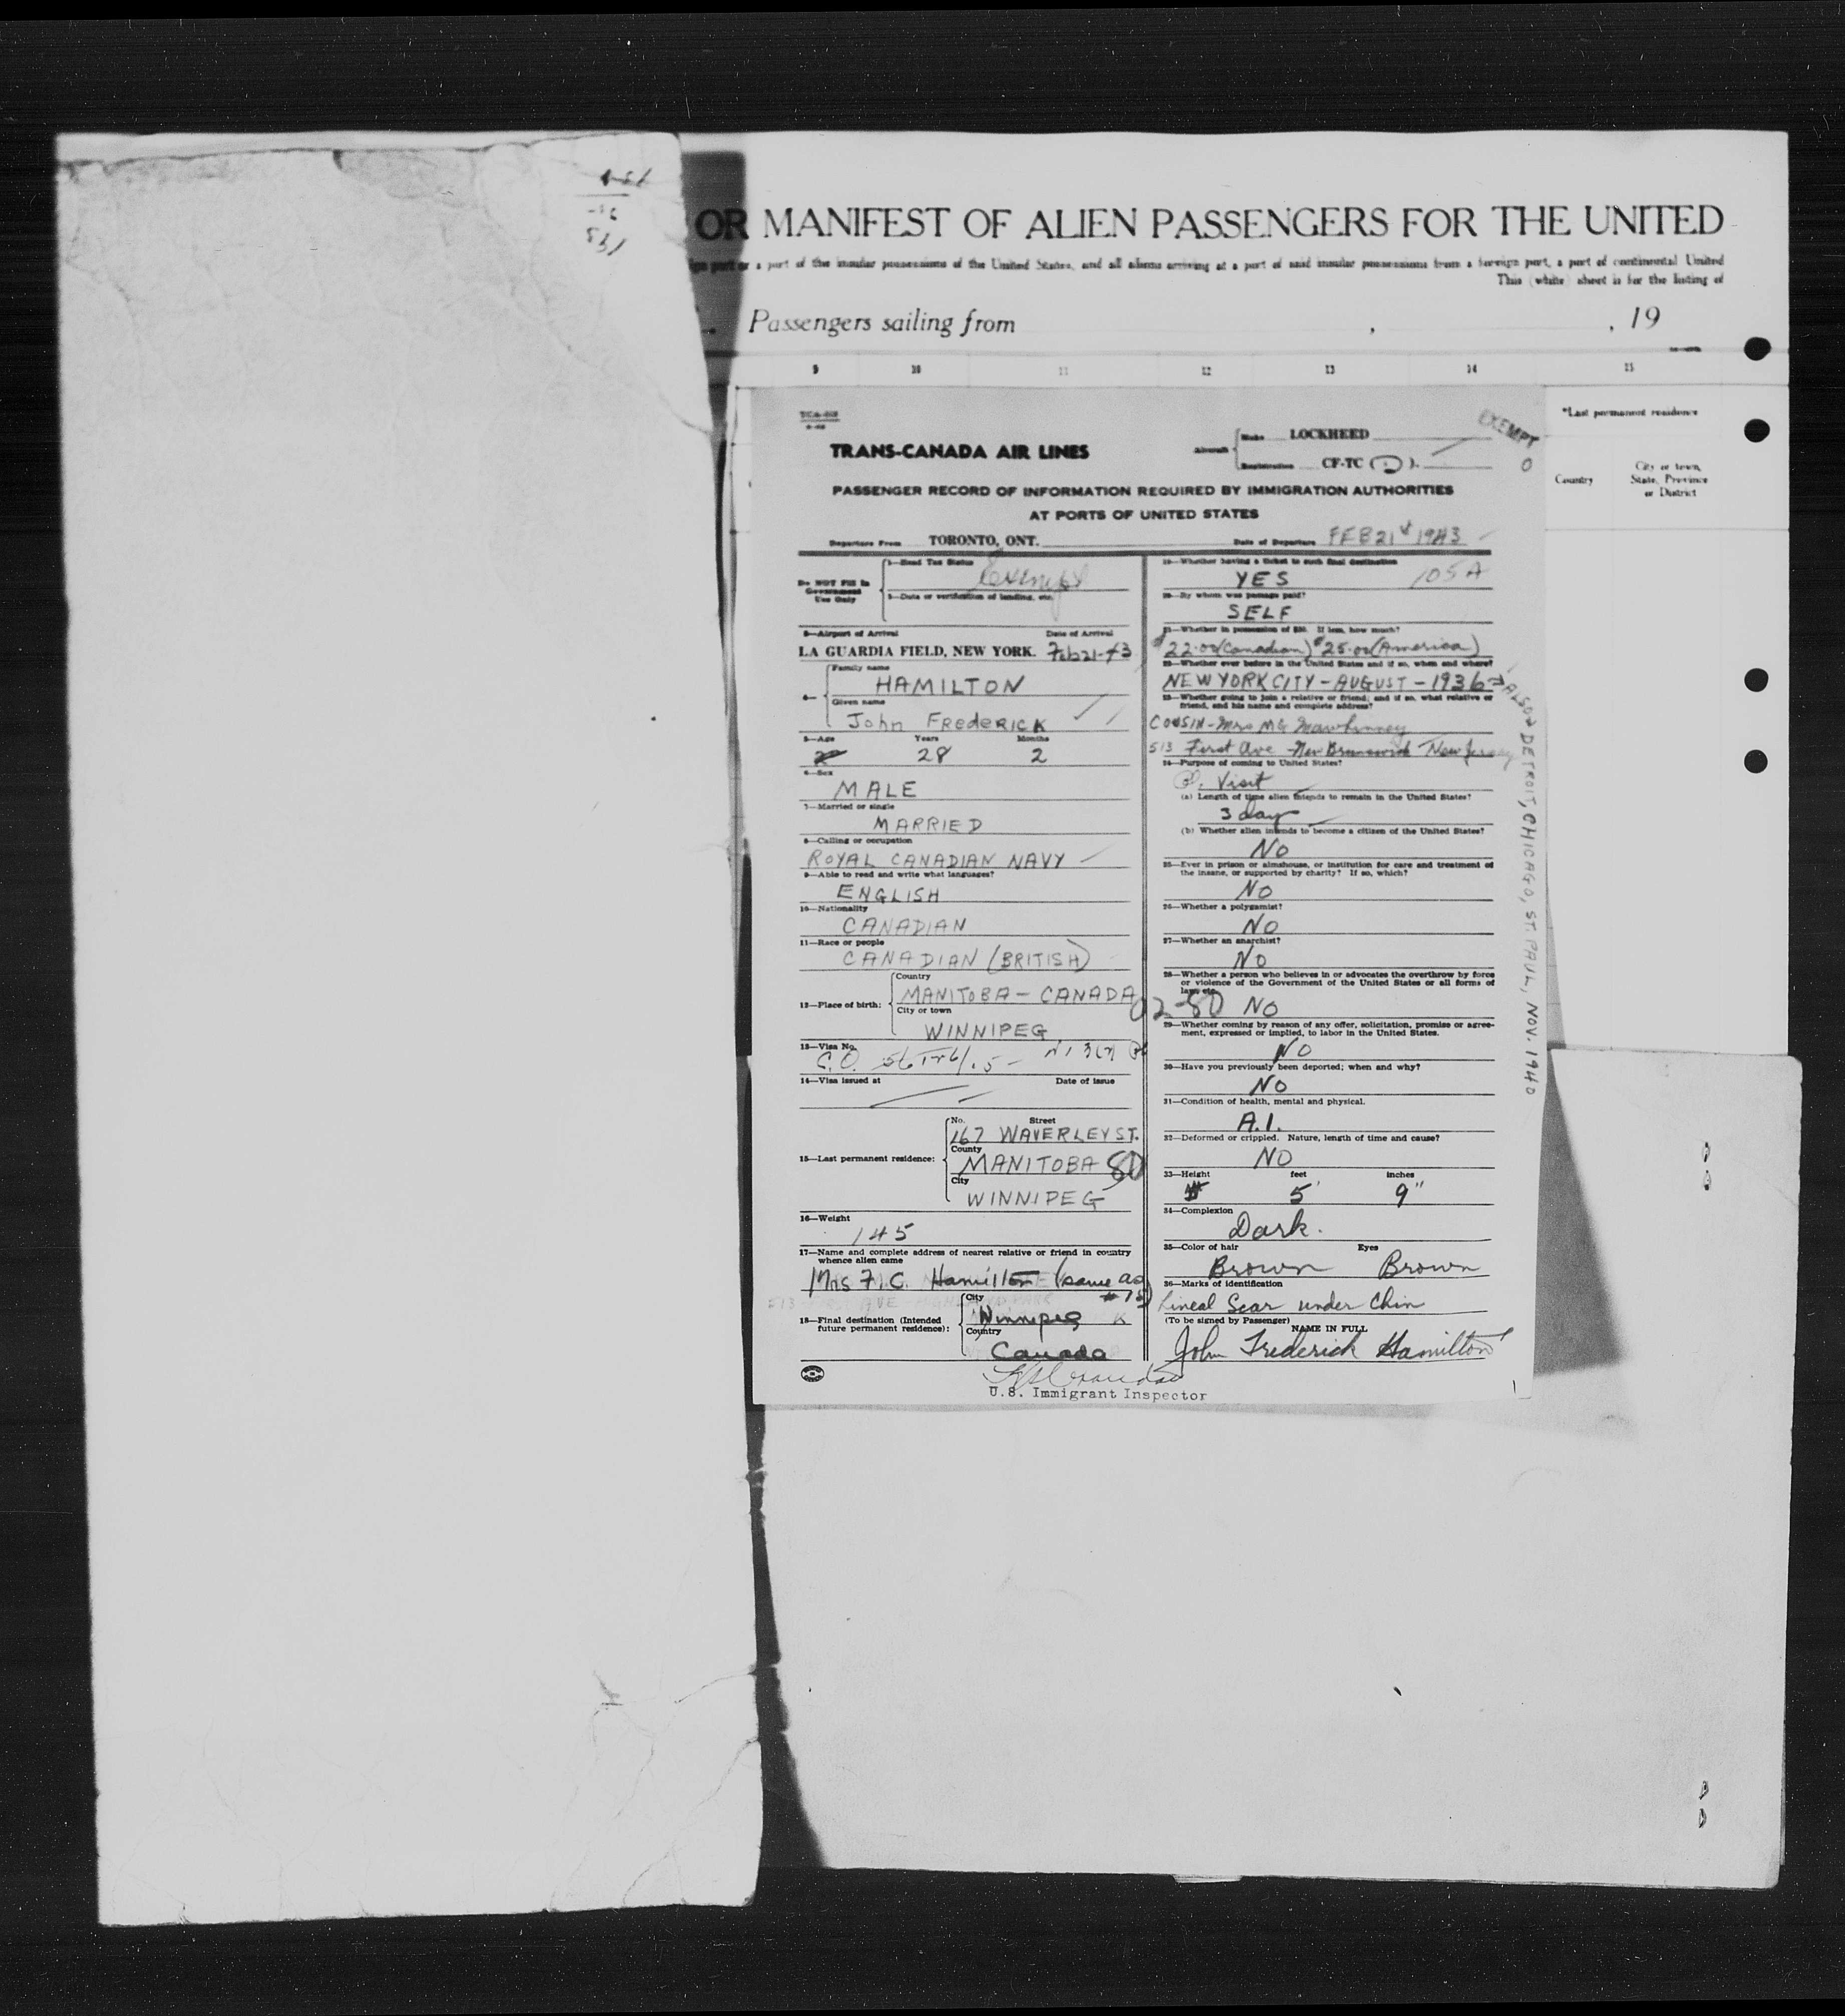 OR MANIFEST OF ALIEN PASSENGERS FOR THE UNITED
a port of the insular possessions of the United States, and all aliens arriving at a port of said insular possessions from a foreign port, a port of continental United
This (white) sheet is for the listing of
Passengers sailing from , , 19
9 10 11 12 13 14 15
*Last permanent residence
Country
City or town, State, Province or District
EXEMPT
TRANS-CANADA AIR LINES
Aircraft
Make LOCKHEED
Registration CF-TC ( ).
PASSENGER RECORD OF INFORMATION REQUIRED BY IMMIGRATION AUTHORITIES
AT PORTS OF UNITED STATES
Departure From TORONTO, ONT. Date of Departure FEB 21st 1943
Do NOT Fill in
Government
Use Only
1—Head Tax Status
Exempt
2—Date or verification of landing, etc.
3—Airport of Arrival Date of Arrival
LA GUARDIA FIELD, NEW YORK. Feb 21-43
4—
Family name
HAMILTON
Given name
John FREDERICK
5—Age Years Months
28 2
6—Sex
MALE
7—Married or single
MARRIED
8—Calling or occupation
ROYAL CANADIAN NAVY
9—Able to read and write what languages?
ENGLISH
10—Nationality
CANADIAN
11—Race or people
CANADIAN (BRITISH)
12—Place of birth:
Country
MANITOBA - CANADA
City or town
WINNIPEG
13—Visa No.
14—Visa issued at Date of issue
15—Last permanent residence:
No. Street
167 WAVERLEY ST.
County
MANITOBA 80
City
WINNIPEG
16—Weight
145
17—Name and complete address of nearest relative or friend in country
whence alien came
Mrs F.C. Hamilton (same as
#15)
18—Final destination (Intended
future permanent residence):
City
Winnipeg
Country
Canada
19—Whether having a ticket to such final destination
YES 105A
20—By whom was passage paid?
SELF
21—Whether in possession of $50. If less, how much?
$22.00 (Canadian) $25.00 (America)
22—Whether ever before in the United States and if so, when and where?
NEW YORK CITY - AUGUST - 1936
ALSO DETROIT, CHICAGO, ST. PAUL, NOV. 1940
23—Whether going to join a relative or friend; and if so, what relative or
friend, and his name and complete address?
COUSIN - Mrs MG Mawhinney
513 First Ave New Brunswick New Jersey
24—Purpose of coming to United States?
Visit
(a) Length of time alien intends to remain in the United States?
3 days
(b) Whether alien intends to become a citizen of the United States?
NO
25—Ever in prison or almshouse, or institution for care and treatment of
the insane, or supported by charity? If so, which?
NO
26—Whether a polygamist?
NO
27—Whether an anarchist?
NO
28—Whether a person who believes in or advocates the overthrow by force
or violence of the Government of the United States or all forms of
law, etc.
02-80 NO
29—Whether coming by reason of any offer, solicitation, promise or agree-
ment, expressed or implied, to labor in the United States.
NO
30—Have you previously been deported; when and why?
NO
31—Condition of health, mental and physical.
A.1.
32—Deformed or crippled. Nature, length of time and cause?
NO
33—Height feet inches
5' 9"
34—Complexion
Dark.
35—Color of hair Eyes
Brown Brown
36—Marks of identification
Lineal Scar under Chin
(To be signed by Passenger)
NAME IN FULL
John Frederick Hamilton
U.S. Immigrant Inspector